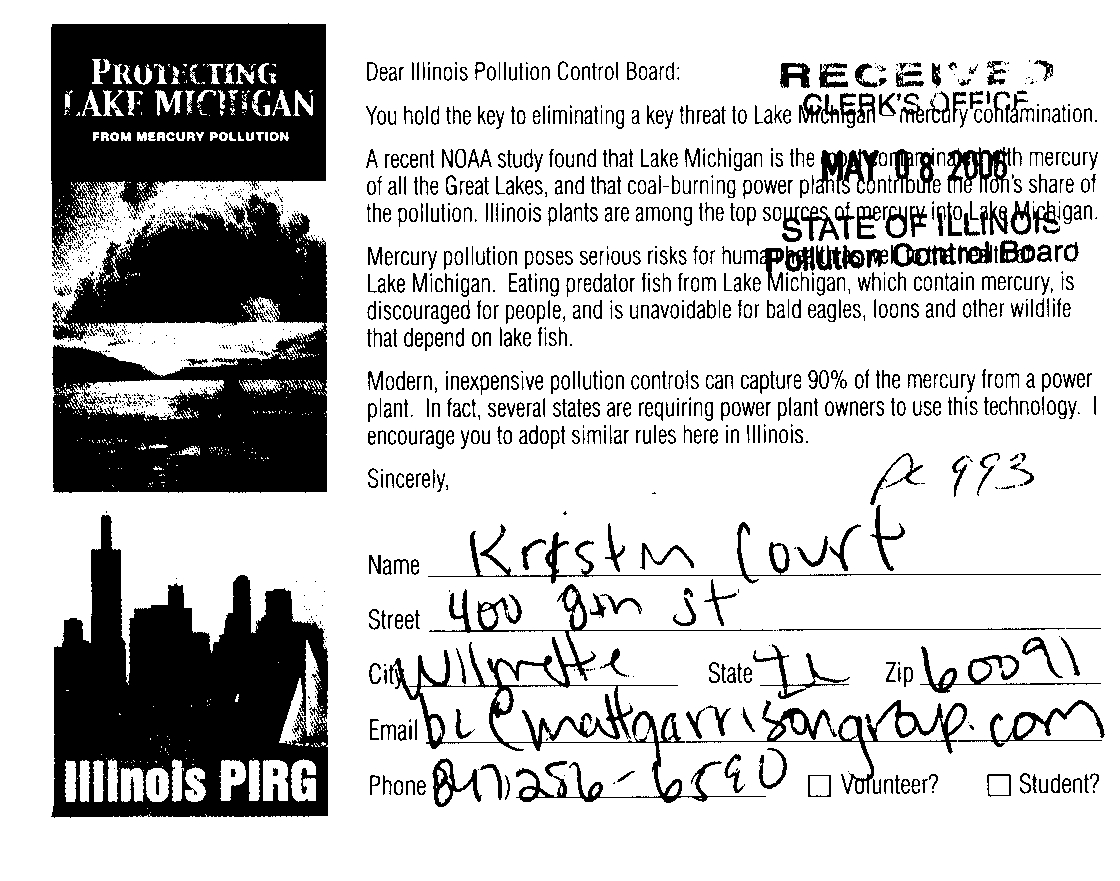 PROTECTING
LAKE MICHIGAN
FROM MERCURY POLLUTION
Dear Illinois Pollution Control Board:
RECEIVED
CLERK'S OFFICE
You hold the key to eliminating a key threat to Lake Michigan – mercury contamination.
MAY 08 2006
A recent NOAA study found that Lake Michigan is the most contaminated with mercury
of all the Great Lakes, and that coal-burning power plants contribute the lion's share of
the pollution. Illinois plants are among the top sources of mercury into Lake Michigan.
STATE OF ILLINOIS
Pollution Control Board
Mercury pollution poses serious risks for human
Lake Michigan. Eating predator fish from Lake Michigan, which contain mercury, is
discouraged for people, and is unavoidable for bald eagles, loons and other wildlife
that depend on lake fish.
Modern, inexpensive pollution controls can capture 90% of the mercury from a power
plant. In fact, several states are requiring power plant owners to use this technology. I
encourage you to adopt similar rules here in Illinois.
Sincerely,
pc 993
Name Kristin Court
Street 400 8th St
City Wilmette State IL Zip 60091
Email @mattgarrisongroup.com
Phone 847)256-6590 Volunteer? Student?
Illinois PIRG